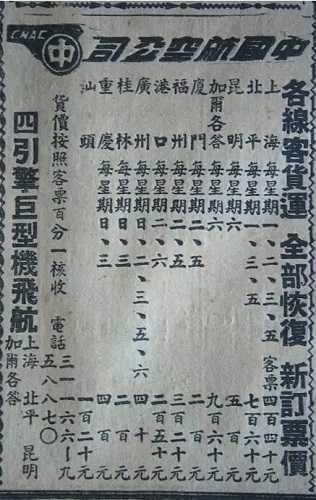 CNAC
中
中國航空公司
各線客貨運 全部恢復 新訂票價
上海 每星期一、二、四、五 客票 四百四十元
北平 每星期一、三、五 七百六十元
昆明 每星期六 五百元
加爾各答 每星期六 九百六十元
廈門 每星期二、五 二百元
福州 每星期二、五
港口 每星期二、六 二百五十元
廣州 每星期一、二、三、五、六 四十元
桂林 二百元
重慶 每星期日、三 四百元
汕頭 一百二十元
貨價按照客票百分一核收 電話 三一一六六一九
五八八七〇
四引擎巨型機飛航 上海 北平 昆明
加爾各答